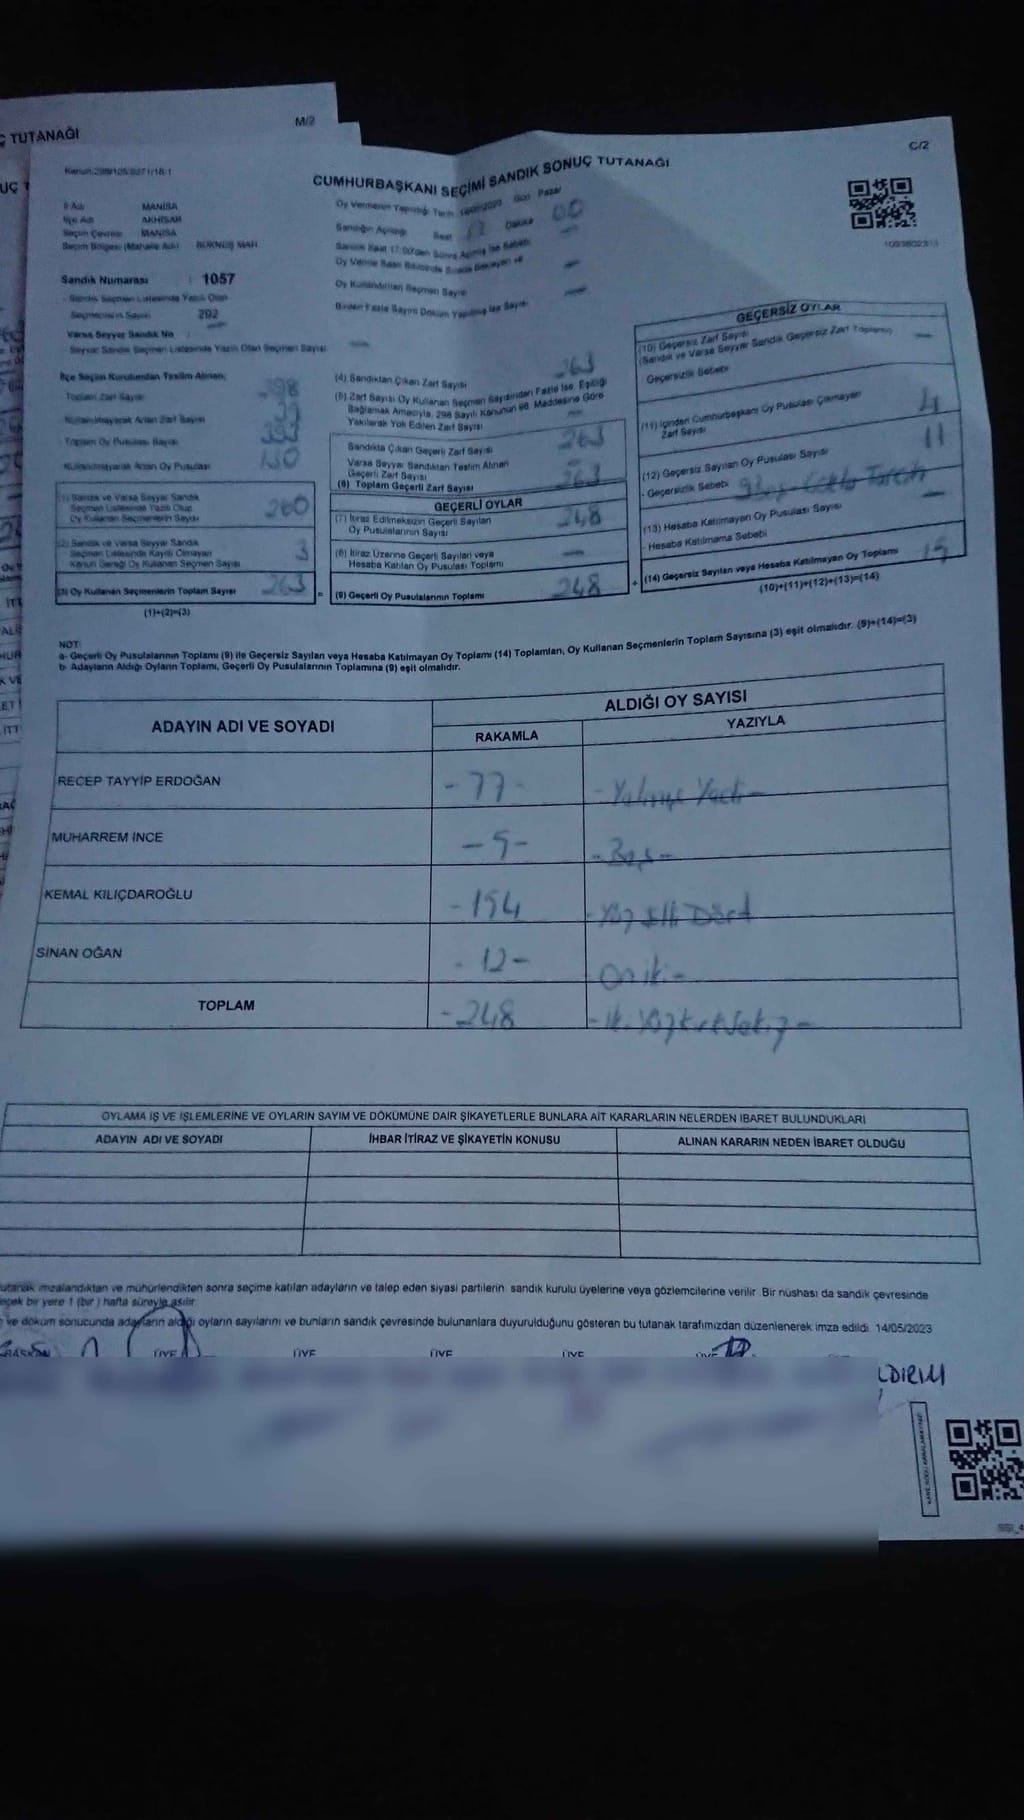 Ç TUTANAĞI
M/2
C/2
UÇ T
CUMHURBAŞKANI SEÇİMİ SANDIK SONUÇ TUTANAĞI
İl Adı MANİSA
İlçe Adı AKHİSAR
Seçim Çevresi MANİSA
Seçim Bölgesi (Mahalle Adı)
Sandık Numarası : 1057
Sandık Seçmen Listesinde Yazılı Olan
Seçmenlerin Sayısı 292
Varsa Seyyar Sandık No
Seyyar Sandık Seçmen Listesinde Yazılı Olan Seçmen Sayısı
Oy Vermenin Yapıldığı Tarih Gün Pazar
Sandığın Açıldığı Saat 17 Dakika 00
Sandık Saat 17:00'den Sonra Açılmış İse Sebebi
Oy Kullandırılan Seçmen Sayısı
Birden Fazla Sayım Döküm Yapılmış İse Sayısı
İlçe Seçim Kurulundan Teslim Alınan;
Toplam Zarf Sayısı 398
Kullanılmayarak Artan Zarf Sayısı
Toplam Oy Pusulası Sayısı 393
Kullanılmayarak Artan Oy Pusulası 130
(1) Sandık ve Varsa Seyyar Sandık
Seçmen Listesinde Yazılı Olup
Oy Kullanan Seçmenlerin Sayısı 260
(2) Sandık ve Varsa Seyyar Sandık
Seçmen Listesinde Kayıtlı Olmayan
Kanun Gereği Oy Kullanan Seçmen Sayısı 3
(3) Oy Kullanan Seçmenlerin Toplam Sayısı 263
(1)+(2)=(3)
(4) Sandıktan Çıkan Zarf Sayısı 263
(5) Zarf Sayısı Oy Kullanan Seçmen Sayısından Fazla İse, Eşitliği
Sağlamak Amacıyla, 298 Sayılı Kanunun 98. Maddesine Göre
Yakılarak Yok Edilen Zarf Sayısı
Sandıkta Çıkan Geçerli Zarf Sayısı 263
Varsa Seyyar Sandıktan Teslim Alınan
Geçerli Zarf Sayısı
(6) Toplam Geçerli Zarf Sayısı 263
GEÇERLİ OYLAR
(7) İtiraz Edilmeksizin Geçerli Sayılan
Oy Pusulalarının Sayısı 248
(8) İtiraz Üzerine Geçerli Sayılan veya
Hesaba Katılan Oy Pusulası Toplamı
(9) Geçerli Oy Pusulalarının Toplamı 248
GEÇERSİZ OYLAR
(10) Geçersiz Zarf Sayısı
(Sandık ve Varsa Seyyar Sandık Geçersiz Zarf Toplamı)
Geçersizlik Sebebi
(11) İçinden Cumhurbaşkanı Oy Pusulası Çıkmayan
Zarf Sayısı 4
(12) Geçersiz Sayılan Oy Pusulası Sayısı 11
- Geçersizlik Sebebi
(13) Hesaba Katılmayan Oy Pusulası Sayısı
- Hesaba Katılmama Sebebi
(14) Geçersiz Sayılan veya Hesaba Katılmayan Oy Toplamı 15
(10)+(11)+(12)+(13)=(14)
NOT:
a- Geçerli Oy Pusulalarının Toplamı (9) ile Geçersiz Sayılan veya Hesaba Katılmayan Oy Toplamı (14) Toplamları, Oy Kullanan Seçmenlerin Toplam Sayısına (3) eşit olmalıdır. (9)+(14)=(3)
b- Adayların Aldığı Oyların Toplamı, Geçerli Oy Pusulalarının Toplamına (9) eşit olmalıdır.
ADAYIN ADI VE SOYADI
ALDIĞI OY SAYISI
RAKAMLA YAZIYLA
RECEP TAYYİP ERDOĞAN -77- -Yetmiş Yedi-
MUHARREM İNCE -5- -Beş-
KEMAL KILIÇDAROĞLU -154 -Yüz Elli Dört
SİNAN OĞAN - 12- -On iki-
TOPLAM -248 -İki Yüz Kırk Sekiz-
OYLAMA İŞ VE İŞLEMLERİNE VE OYLARIN SAYIM VE DÖKÜMÜNE DAİR ŞİKAYETLERLE BUNLARA AİT KARARLARIN NELERDEN İBARET BULUNDUKLARI
ADAYIN ADI VE SOYADI İHBAR İTİRAZ VE ŞİKAYETİN KONUSU ALINAN KARARIN NEDEN İBARET OLDUĞU
utanak imzalandıktan ve mühürlendikten sonra seçime katılan adayların ve talep eden siyasi partilerin sandık kurulu üyelerine veya gözlemcilerine verilir. Bir nüshası da sandık çevresinde
eçek bir yere 1 (bir) hafta süreyle asılır.
ve döküm sonucunda adayların aldığı oyların sayılarını ve bunların sandık çevresinde bulunanlara duyurulduğunu gösteren bu tutanak tarafımızdan düzenlenerek imza edildi. 14/05/2023
BAŞKAN ÜYE ÜYE ÜYE ÜYE ÜYE
LDIRIM